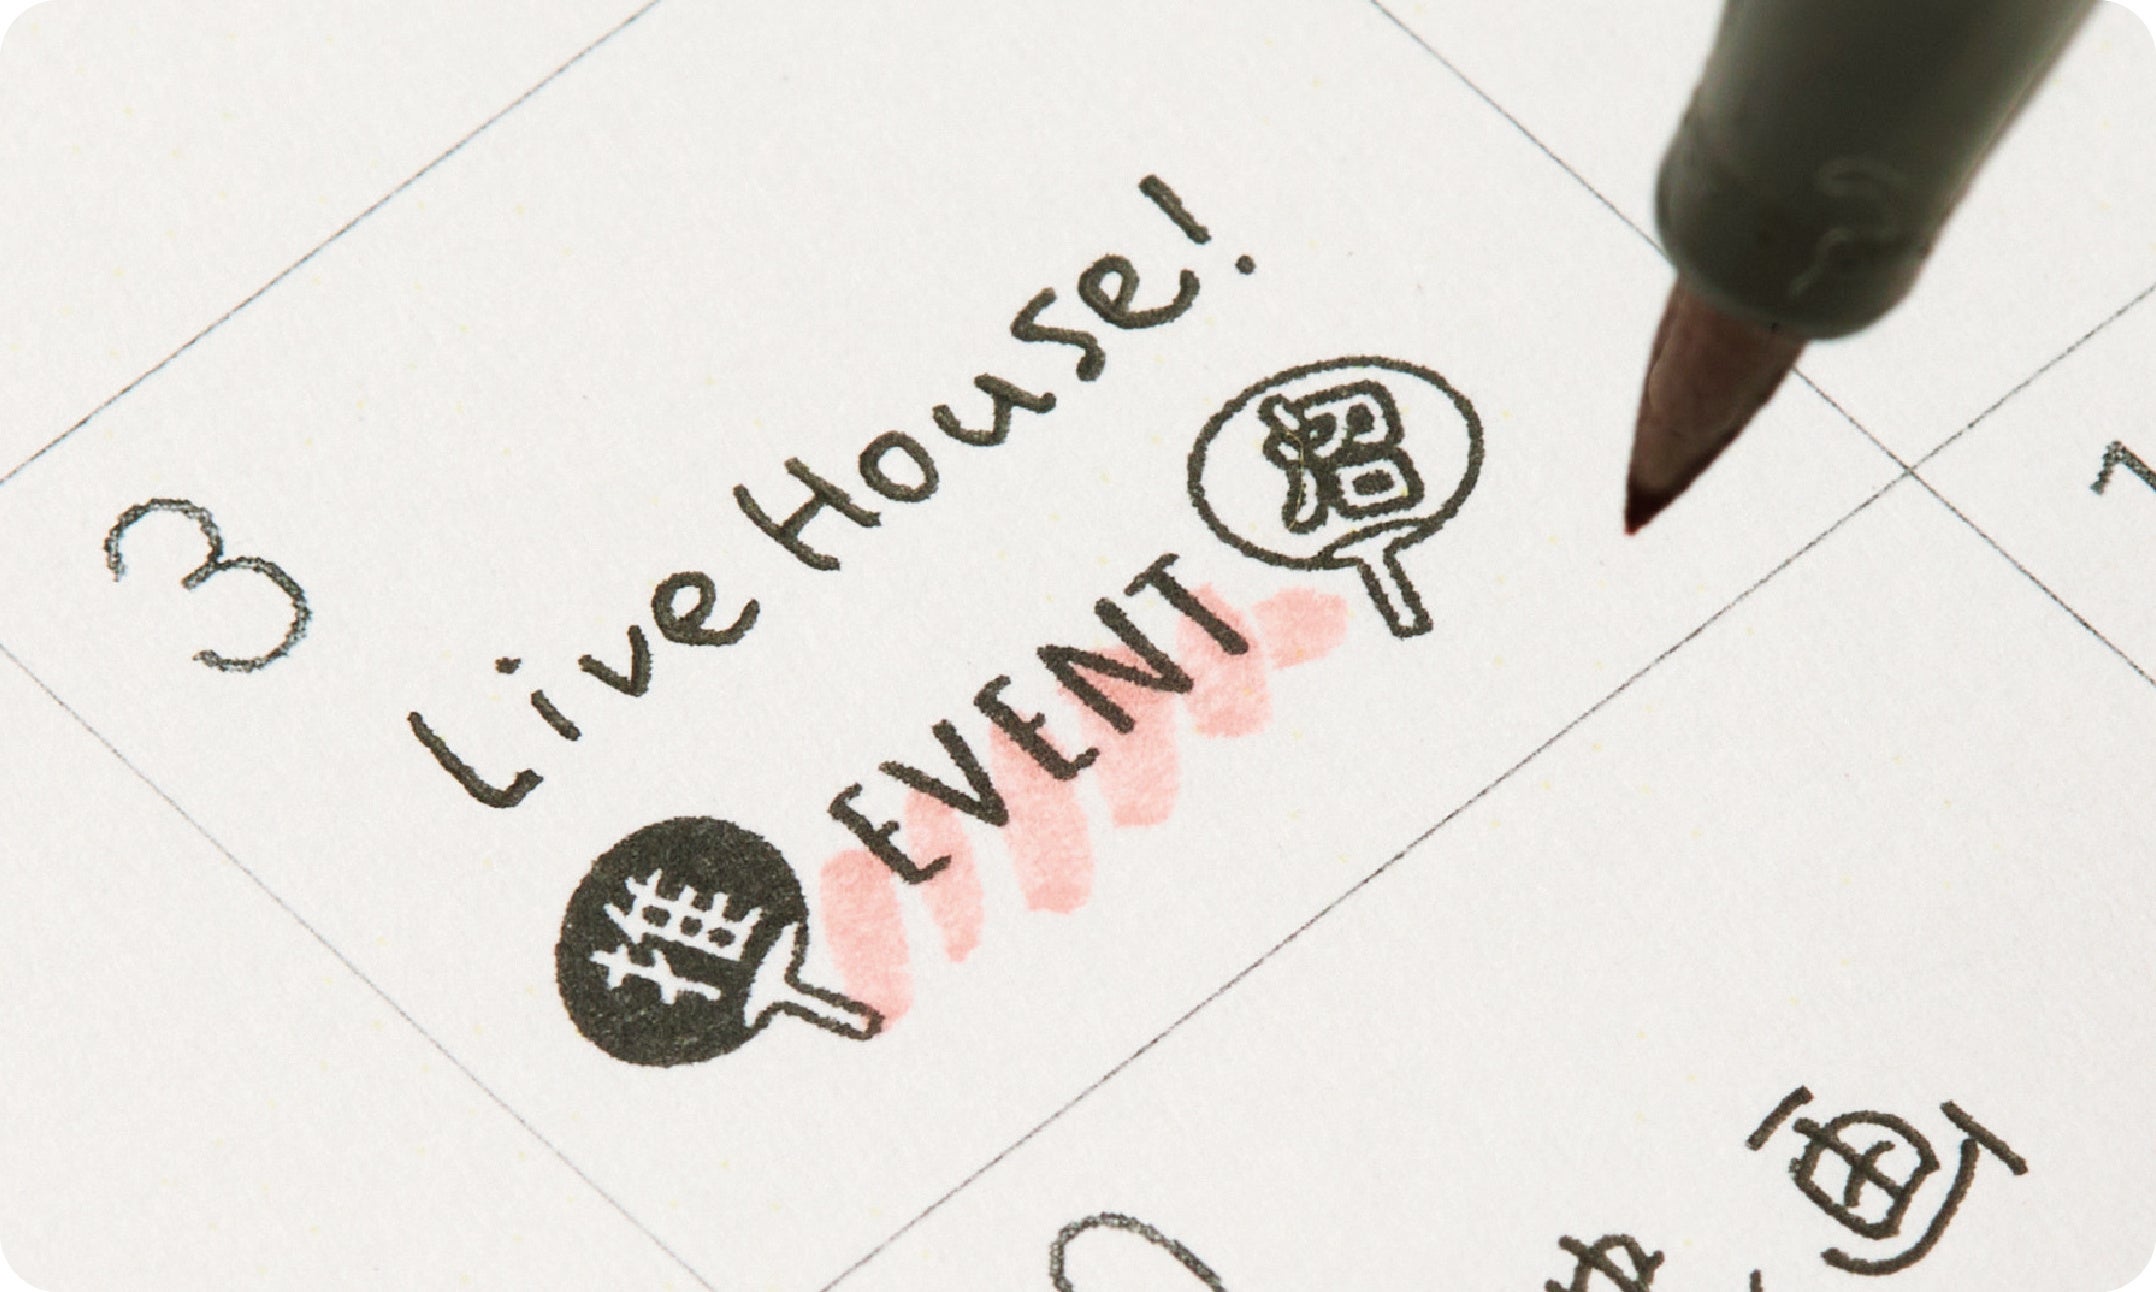 3
Live House!
推 EVENT 沼